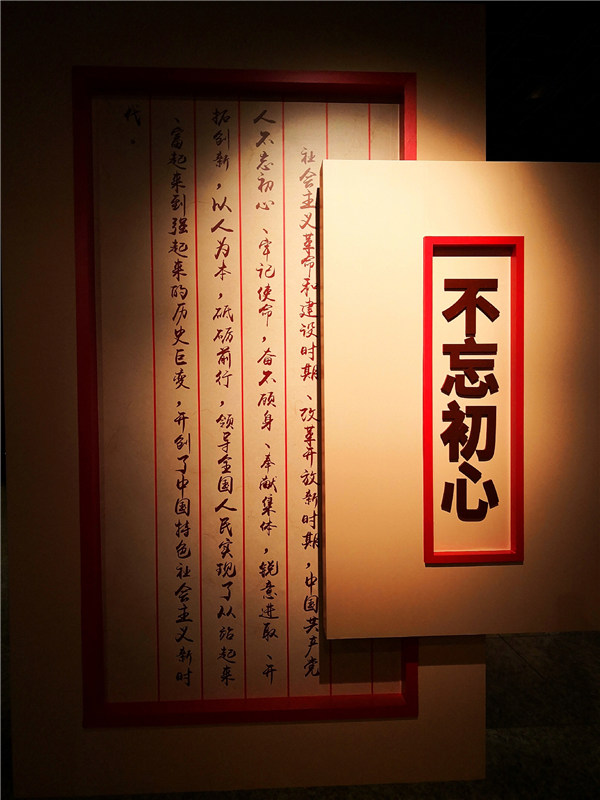 社会主义革命和建设时期、改革开放新时期，中国共产党
人不忘初心、牢记使命，奋不顾身、奉献集体，锐意进取、开
拓创新，以人为本，砥砺前行，领导全国人民实现了从站起来
、富起来到强起来的历史巨变，开创了中国特色社会主义新时
代。
不忘初心